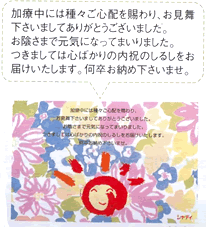 加療中には種々ご心配を賜わり、お見舞
下さいましてありがとうございました。
お陰さまで元気になってまいりました。
つきましては心ばかりの内祝のしるしをお
届けいたします。何卒お納め下さいませ。
加療中には種々ご心配を賜わり、
お見舞下さいましてありがとうございました。
お陰さまで元気になってまいりました。
つきましては心ばかりの内祝のしるしをお届けいたします。
何卒お納め下さいませ。
シャディ